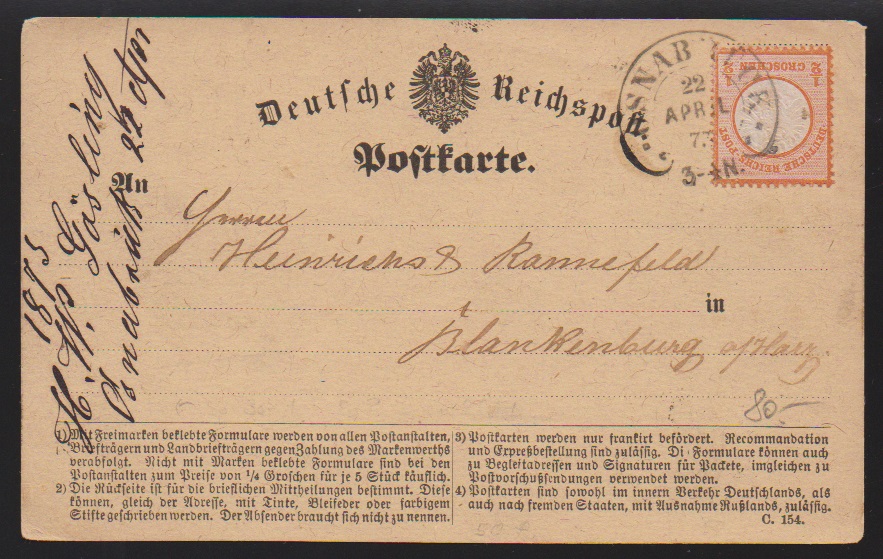 Deutsche Reichspost
Postkarte.
OSNABRÜCK
22
APRIL
73
3-4N.
½ GROSCHEN ½
DEUTSCHE REICHS-POST
An
Herren
Heinrichs & Rannefeld
in
Blankenburg a/Harz.
80.-
1873
H. W. Gösling
Osnabrück 22
1) Mit Freimarken beklebte Formulare werden von allen Postanstalten,
Briefträgern und Landbriefträgern gegen Zahlung des Markenwerths
verabfolgt. Nicht mit Marken beklebte Formulare sind bei den
Postanstalten zum Preise von ¼ Groschen für je 5 Stück käuflich.
2) Die Rückseite ist für die brieflichen Mittheilungen bestimmt. Diese
können, gleich der Adresse, mit Tinte, Bleifeder oder farbigem
Stifte geschrieben werden. Der Absender braucht sich nicht zu nennen.
3) Postkarten werden nur frankirt befördert. Recommandation
und Expreßbestellung sind zulässig. Di Formulare können auch
zu Begleitadressen und Signaturen für Packete, imgleichen zu
Postvorschußsendungen verwendet werden.
4) Postkarten sind sowohl im innern Verkehr Deutschlands, als
auch nach fremden Staaten, mit Ausnahme Rußlands, zulässig.
C. 154.